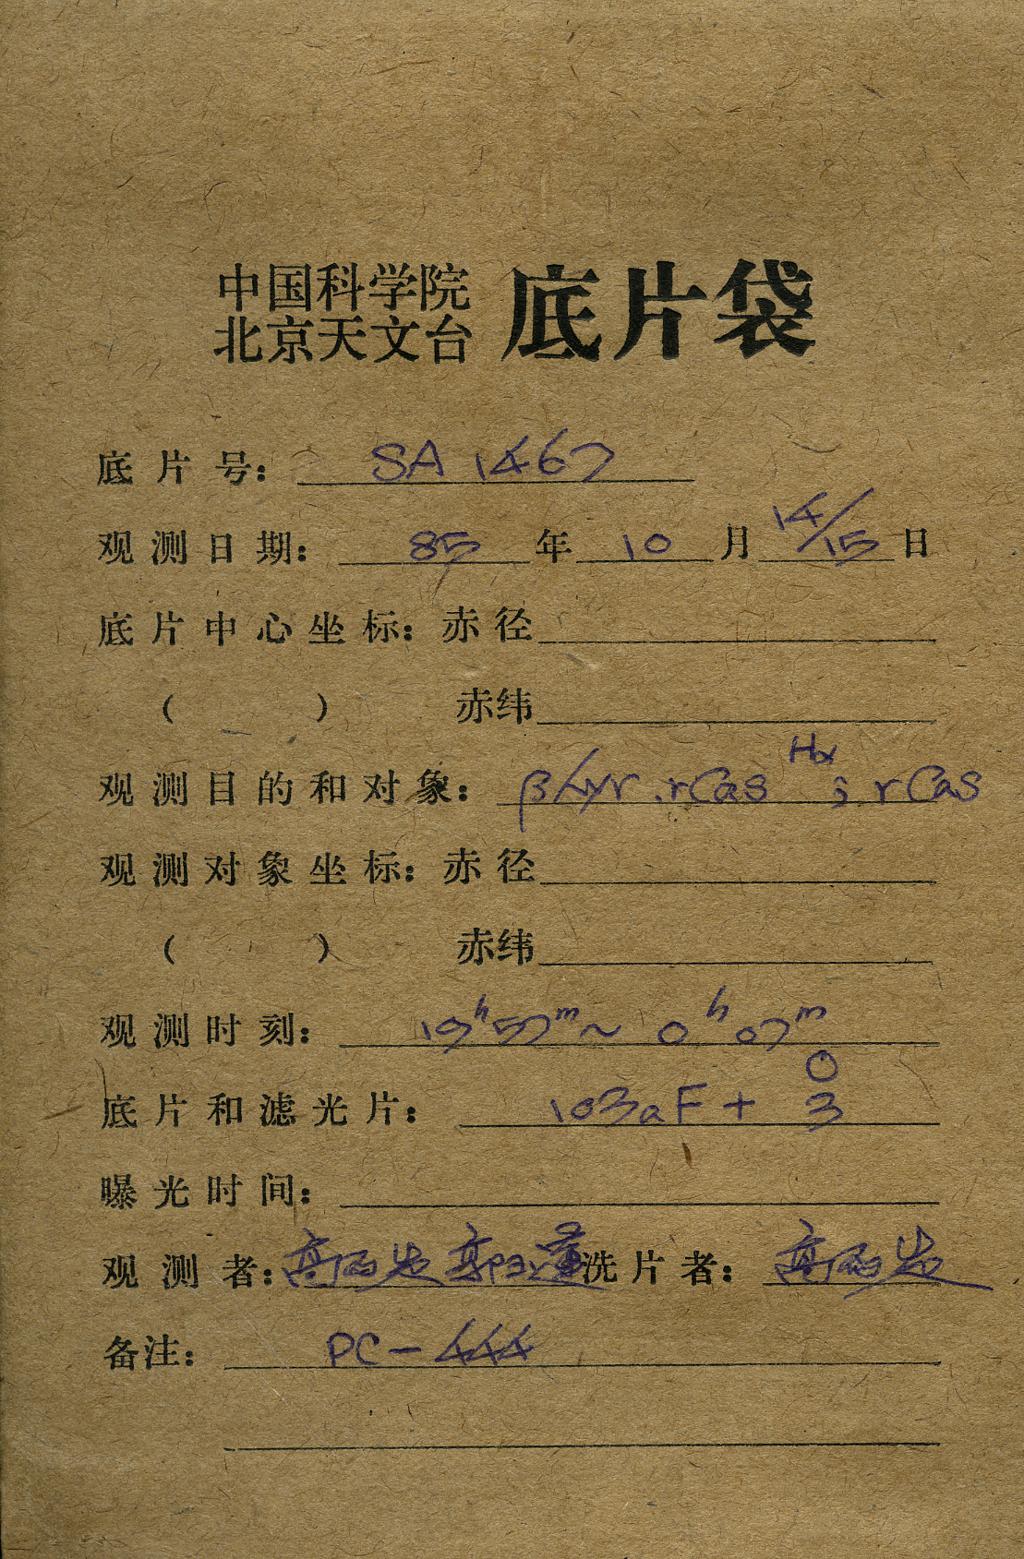 中国科学院
北京天文台 底片袋
底片号: SA 1467
观测日期: 85 年 10 月 14/15 日
底片中心坐标: 赤径
( ) 赤纬
观测目的和对象: β Lyr . r Cas Hα ; r Cas
观测对象坐标: 赤径
( ) 赤纬
观测时刻: 19h57m ~ 0h07m
0
底片和滤光片: 103aF + 3
曝光时间:
观测者: 洗片者:
备注: PC-444